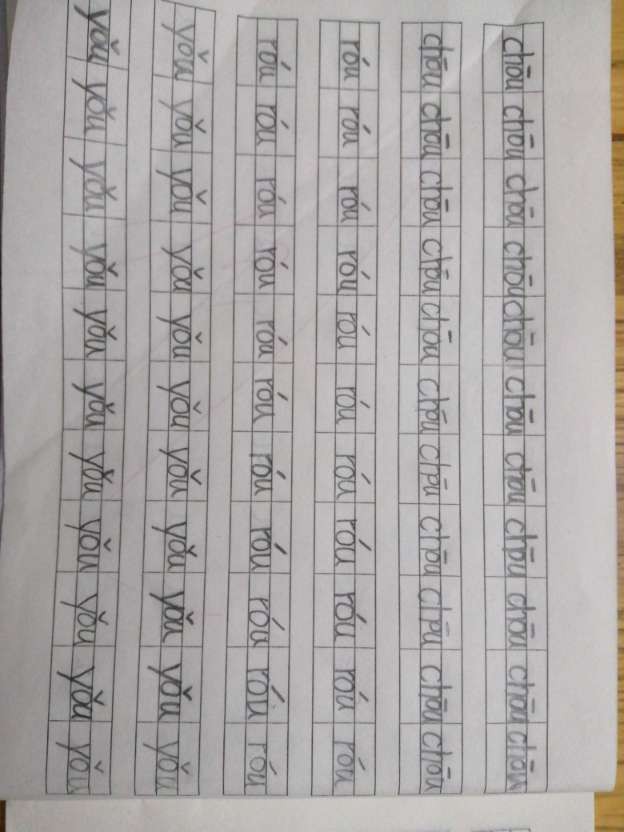 chōu chōu chōu chōu chōu chōu chōu chōu chōu chōu chōu
chōu chōu chōu chōu chōu chōu chōu chōu chōu chōu chōu
róu róu róu róu róu róu róu róu róu róu róu
róu róu róu róu róu róu róu róu róu róu róu
yǒu yǒu yǒu yǒu yǒu yǒu yǒu yǒu yǒu yǒu yǒu
yǒu yǒu yǒu yǒu yǒu yǒu yǒu yǒu yǒu yǒu yǒu